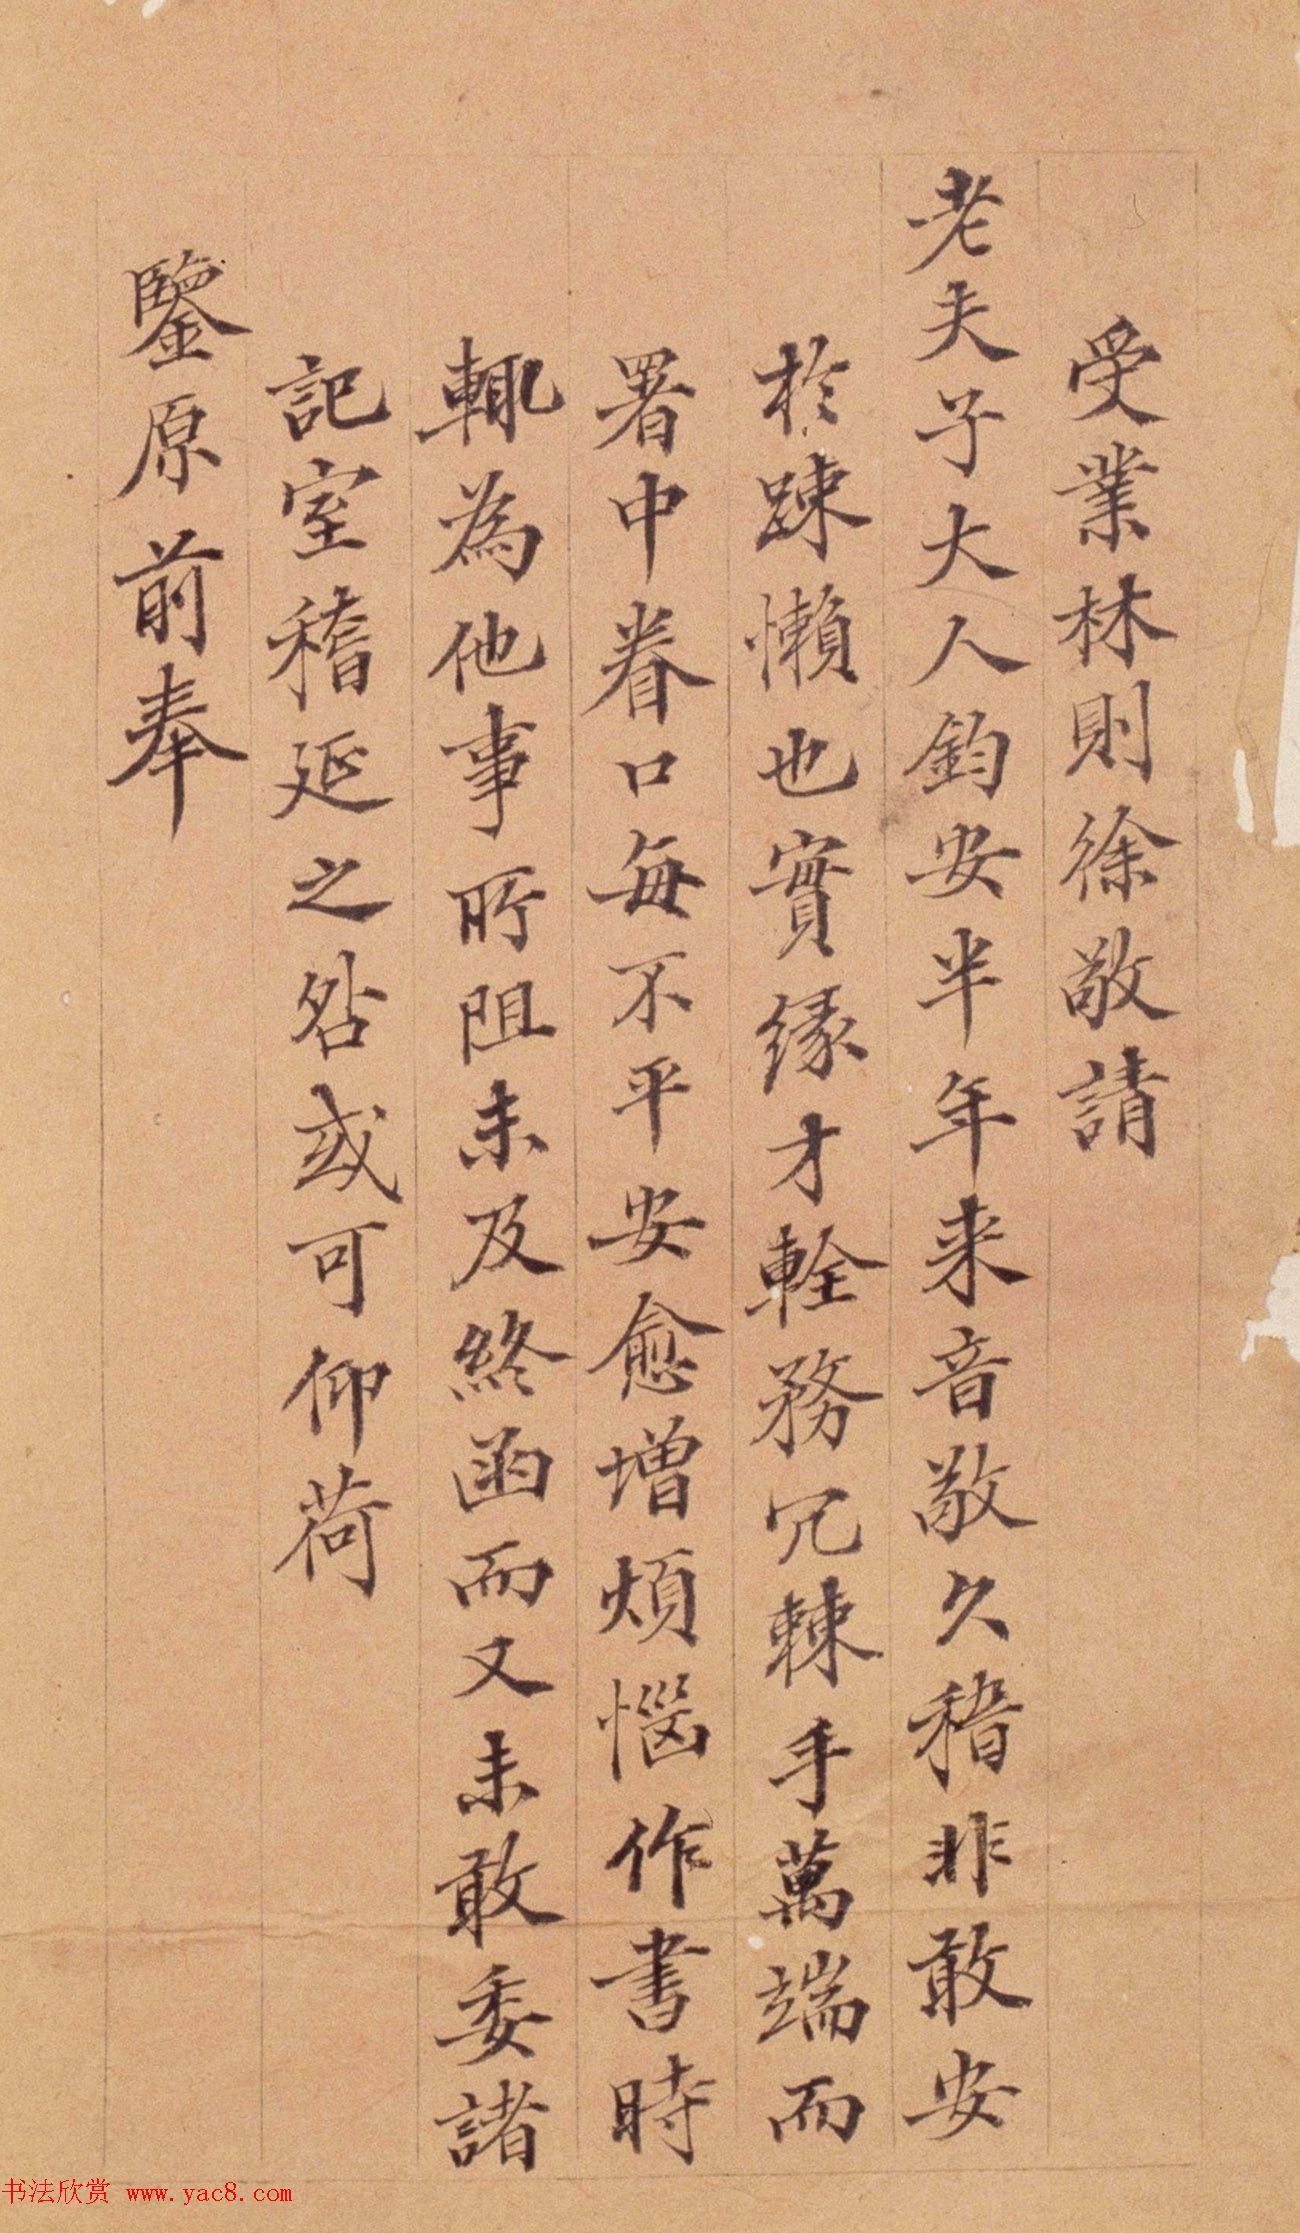 受業林則徐敬請
老夫子大人鈞安半年来音敬久稽非敢安
於踈懶也實緣才輇務冗棘手萬端而
署中眷口每不平安愈增煩惱作書時
輒為他事所阻未及終函而又未敢委諸
記室稽延之咎或可仰荷
鑒原前奉
书法欣赏 www.yac8.com